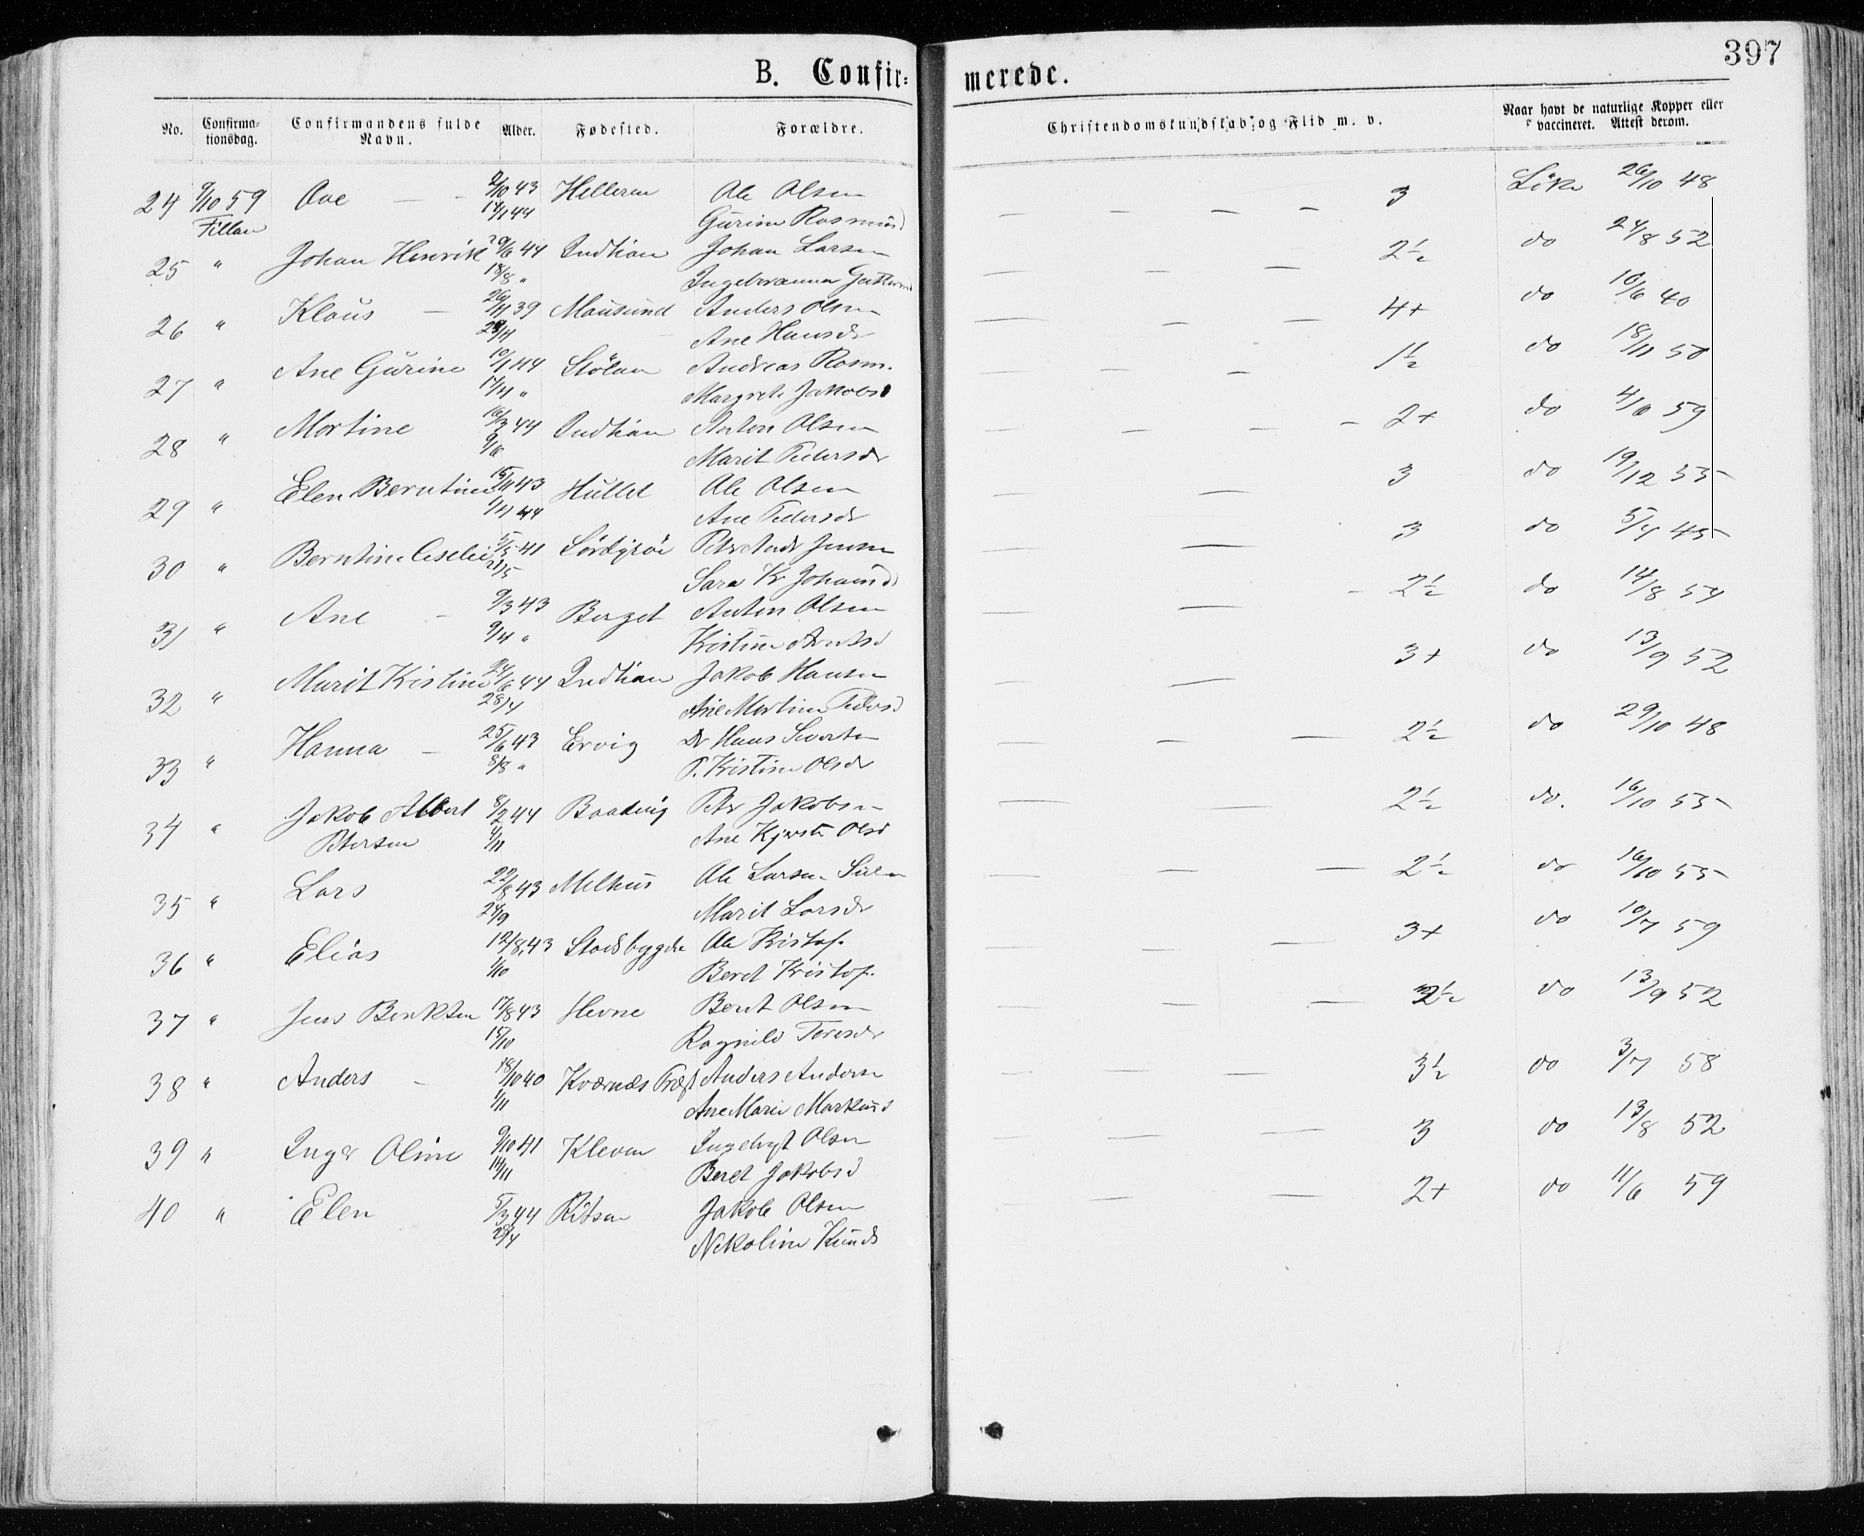 397
B. Confir= merede.
No. Confirma-tionsdag. Confirmandens fulde Navn. Alder. Fødested. Forældre. Christendomskundskab og Flid m. v. Naar havt de naturlige Kopper eller vaccineret. Attest derom.
24 9/10 59 Ove — - 2/10 43 Helleren Ole Olsen — — — — 3 26/10 48
Fillan 14/1 44 Gurine Rasmusd
25 " Johan Henrik 29/6 44 Indtian Johan Larsen — — — 2½ do 24/8 52
18/8 "
26 " Klaus — 26/11 39 Mausund Anders Olsen — — — 4+ do 10/6 40
Ane Hansdr
27 " Ane Gurine 10/1 44 Stølan Andreas Rasm. — — — 1½ do 18/11 50
17/11 " Margrete Jakobsd
28 " Mortine 16/3 44 Indtian Anton Olsen — — — - 2+ do 4/6 59
Marit Pedersdr
29 " Elen Berntine 15/11 43 Hullet Ole Olsen — — 3 do 19/12 55
Ane Pedersdr
30 " Berntine 5/5 41 Peter Andr Jensen — — 3 do 5/4 45
21/5 Sara Kr Johansd
31 " Ane — 9/3 43 Berget Anton Olsen — — - 2½ do 14/8 54
9/4 " Kristine
32 " Marit Kistine 24/6 44 Indtian Jakob Hansen — — 3+ do 13/9 52
Ane Martine Pedersd
33 " Hanna — 25/6 43 Ervig Hans Sivertsen — — — 2½ do 29/10 48
8/8 " P. Kristine Olsdr
34 " Jakob Albert 8/2 44 Baadvig Petr Jakobsen — — — 2½ do. 16/10 55
Petersen 4/11 Ane Kjersti Olsd
35 " Lars 22/8 43 Melhus Ole Larsen — — — 2½ do 16/10 55
24/9 Marit Larsdr
36 " Elias 12/8 43 Stadsbygden Ole Kristof. — — — 3+ do 10/7 59
1/10 Beret Kristof.
37 " Jens Benktsen 17/8 43 Hevne Bent Olsen — — — 3½ do 13/9 52
15/10 Ragnild Toresdr
38 " Anders — 18/10 40 Kværnæs Præst Anders Andersen — — — 3½ do 3/7 58
1/11 Ane Marie Markusd
39 " Inger Oline 9/10 41 Kleven Ingebrgt Olsen — — — 3 do 13/8 52
14/11 Beret Jakobsd
40 " Elen 5/3 44 Ritsen Jakob Olsen — — 2+ do 11/6 59
28/4 Nikoline Knuds